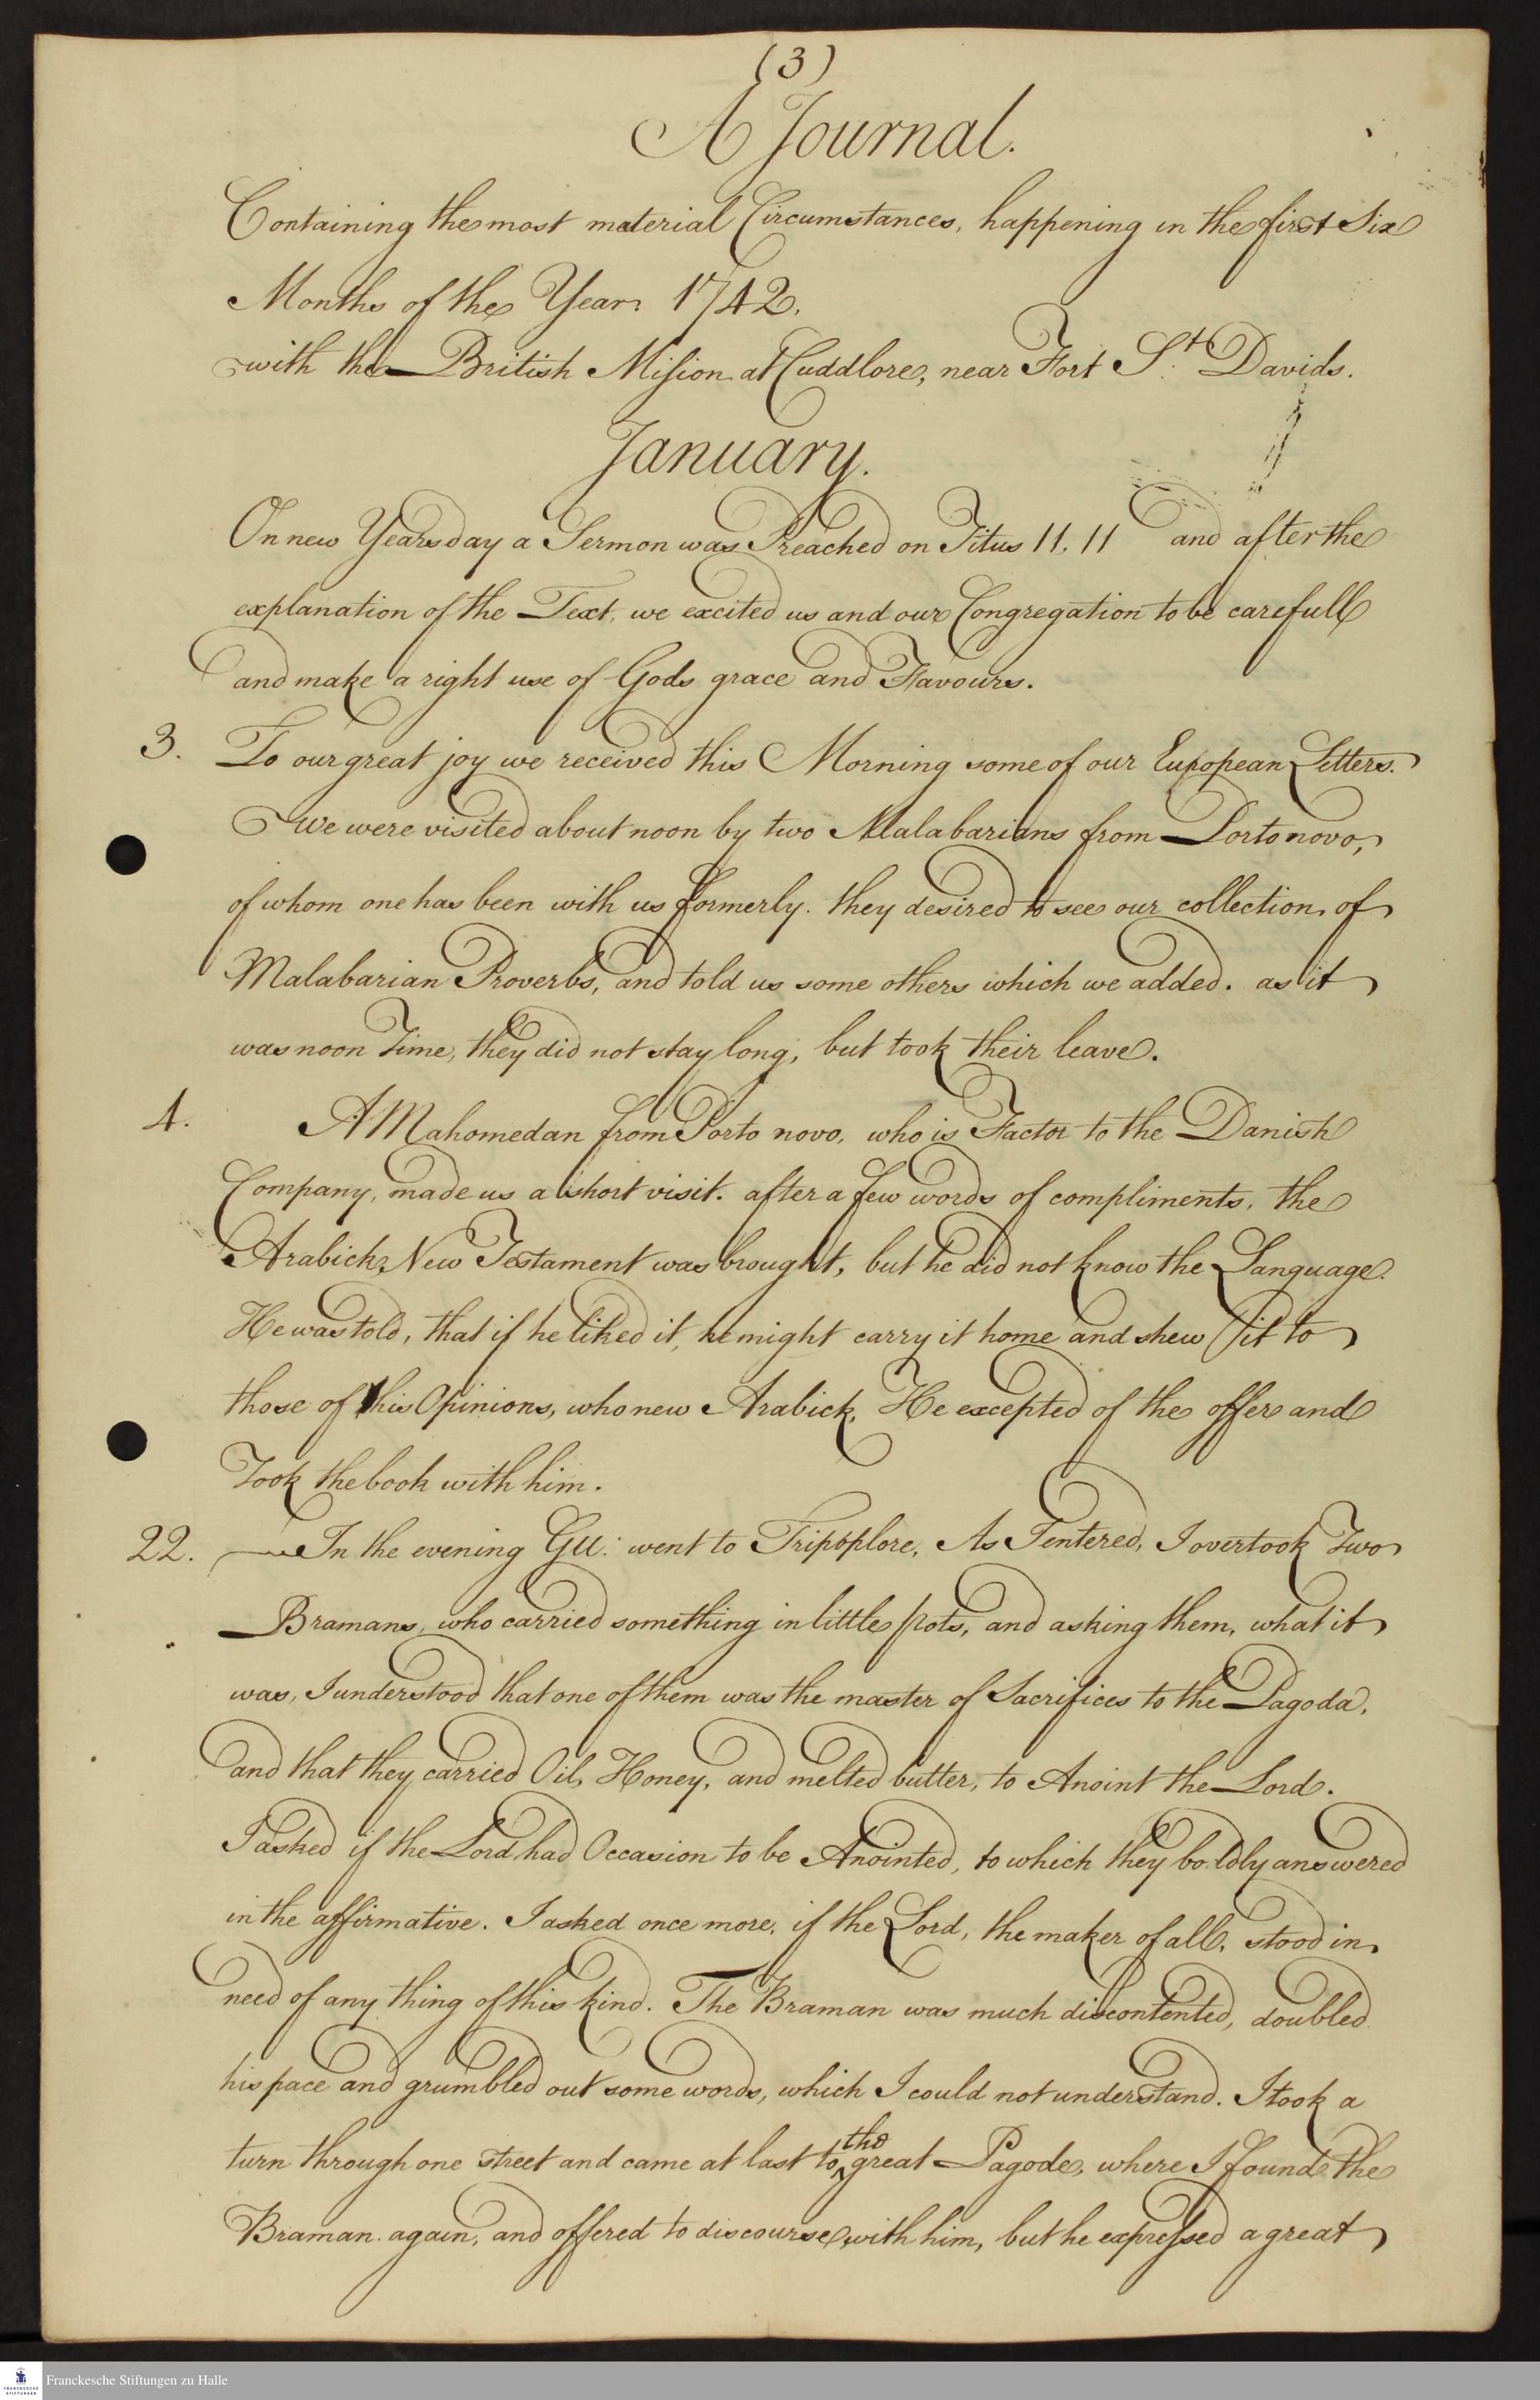 (3)
A Journal.
Containing the most material Circumstances, happening in the first Six
Months of the Year 1742.
with the British Mission at Cuddlore, near Fort St. Davids.
January.
On new Years day a Sermon was Preached on Titus 11. 11 and after the
explanation of the Text, we excited us and our Congregation to be carefull
and make a right use of Gods grace and Favours.
3. To our great joy we received this Morning some of our European Letters.
We were visited about noon by two Malabarians from Porto novo,
of whom one has been with us formerly. they desired to see our collection of
Malabarian Proverbs, and told us some others which we added. as it
was noon Time, they did not stay long, but took their leave.
4. A Mahomedan from Porto novo, who is Factor to the Danish
Company, made us a short visit. after a few words of compliments, the
Arabick New Testament was brought, but he did not know the Language.
He was told, that if he liked it, he might carry it home and shew it to
those of his Opinions, who new Arabick. He excepted of the offer and
Took the book with him.
22. In the evening GU: went to Tripoplore, As I entered, I overtook Two
Bramans, who carried something in little pots, and asking them, what it
was, I understood that one of them was the master of Sacrifices to the Pagoda,
and that they carried Oil, Honey, and melted butter, to Anoint the Lord.
I asked if the Lord had Occasion to be Anointed, to which they boldly answered
in the affirmative. I asked once more, if the Lord, the maker of all, stood in
need of any thing of this kind. The Braman was much discontented, doubled
his pace and grumbled out some words, which I could not understand. I took a
turn through one street and came at last to the great Pagode, where I found the
Braman again, and offered to discourse with him, but he expressed a great
Franckesche Stiftungen zu Halle